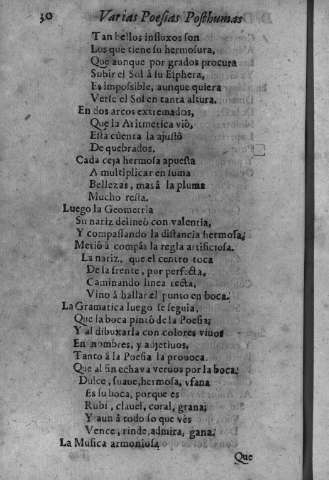 30 Varias Poesias Posthumas
Tan bellos influxos son
Los que tiene su hermosura,
Que aunque por grados procura
Subir el Sol â su Esphera,
Es impossible, aunque quiera
Verse el Sol en tanta altura.
En dos arcos extremados,
Que la Aritmetica viô,
Esta cuenta la ajustò
De quebrados.
Cada ceja hermosa apuesta
A multiplicar en suma
Bellezas, mas â la pluma
Mucho resta.
Luego la Geometria
Su nariz delineò con valentia,
Y compassando la distancia hermosa,
Metiô â compâs la regla artificiosa.
La nariz, que el centro toca
De la frente, por perfecta,
Caminando linea recta,
Vino â hallar el punto en boca.
La Gramatica luego se seguia,
Que la boca pintò de la Poesia;
Y al dibuxarla con colores vivos
En nombres, y adjetivos,
Tanto â la Poesia la provoca.
Que al fin echava veruos por la boca.
Dulce, suaue, hermosa, vfana
Es su boca, porque es
Rubi, clavel, coral, grana;
Y aun â todo lo que vès
Vence, rinde, admira, gana.
La Musica armoniosa,
Que